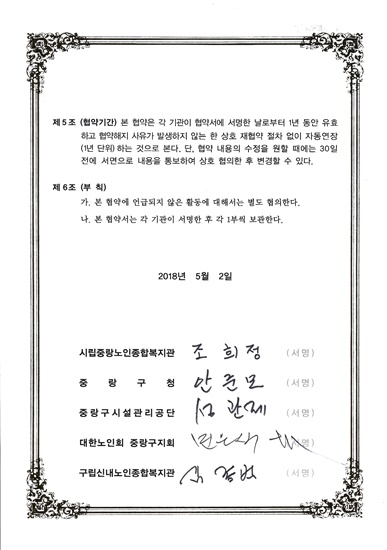 제5조 (협약기간) 본 협약은 각 기관이 협약서에 서명한 날로부터 1년 동안 유효
하고 협약해지 사유가 발생하지 않는 한 상호 재협약 절차 없이 자동연장
(1년 단위)하는 것으로 본다. 단, 협약 내용의 수정을 원할 때에는 30일
전에 서면으로 내용을 통보하여 상호 협의한 후 변경할 수 있다.
제6조 (부 칙)
가. 본 협약에 언급되지 않은 활동에 대해서는 별도 협의한다.
나. 본 협약서는 각 기관이 서명한 후 각 1부씩 보관한다.
2018년 5월 2일
시립중랑노인종합복지관 조 희 정 (서명)
중 랑 구 청 안 준 모 (서명)
중랑구시설관리공단 관 제 (서명)
대한노인회 중랑구지회 명)
구립신내노인종합복지관 (서명)